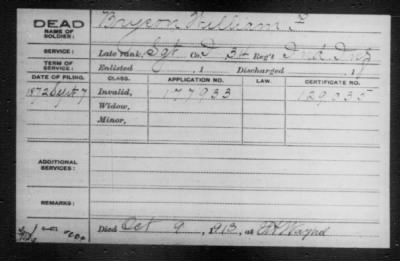 DEAD
NAME OF SOLDIER: Bryson William F
SERVICE: Late rank, Sgt Co. D 34 Reg't Ind. Inf
TERM OF SERVICE: Enlisted , 1 Discharged , 1
DATE OF FILING. CLASS. APPLICATION NO. LAW. CERTIFICATE NO.
1872 Sept 7 Invalid, 177933 129335
Widow,
Minor,
ADDITIONAL SERVICES:
REMARKS:
Died Oct 9, 1913, at Ft Wayne